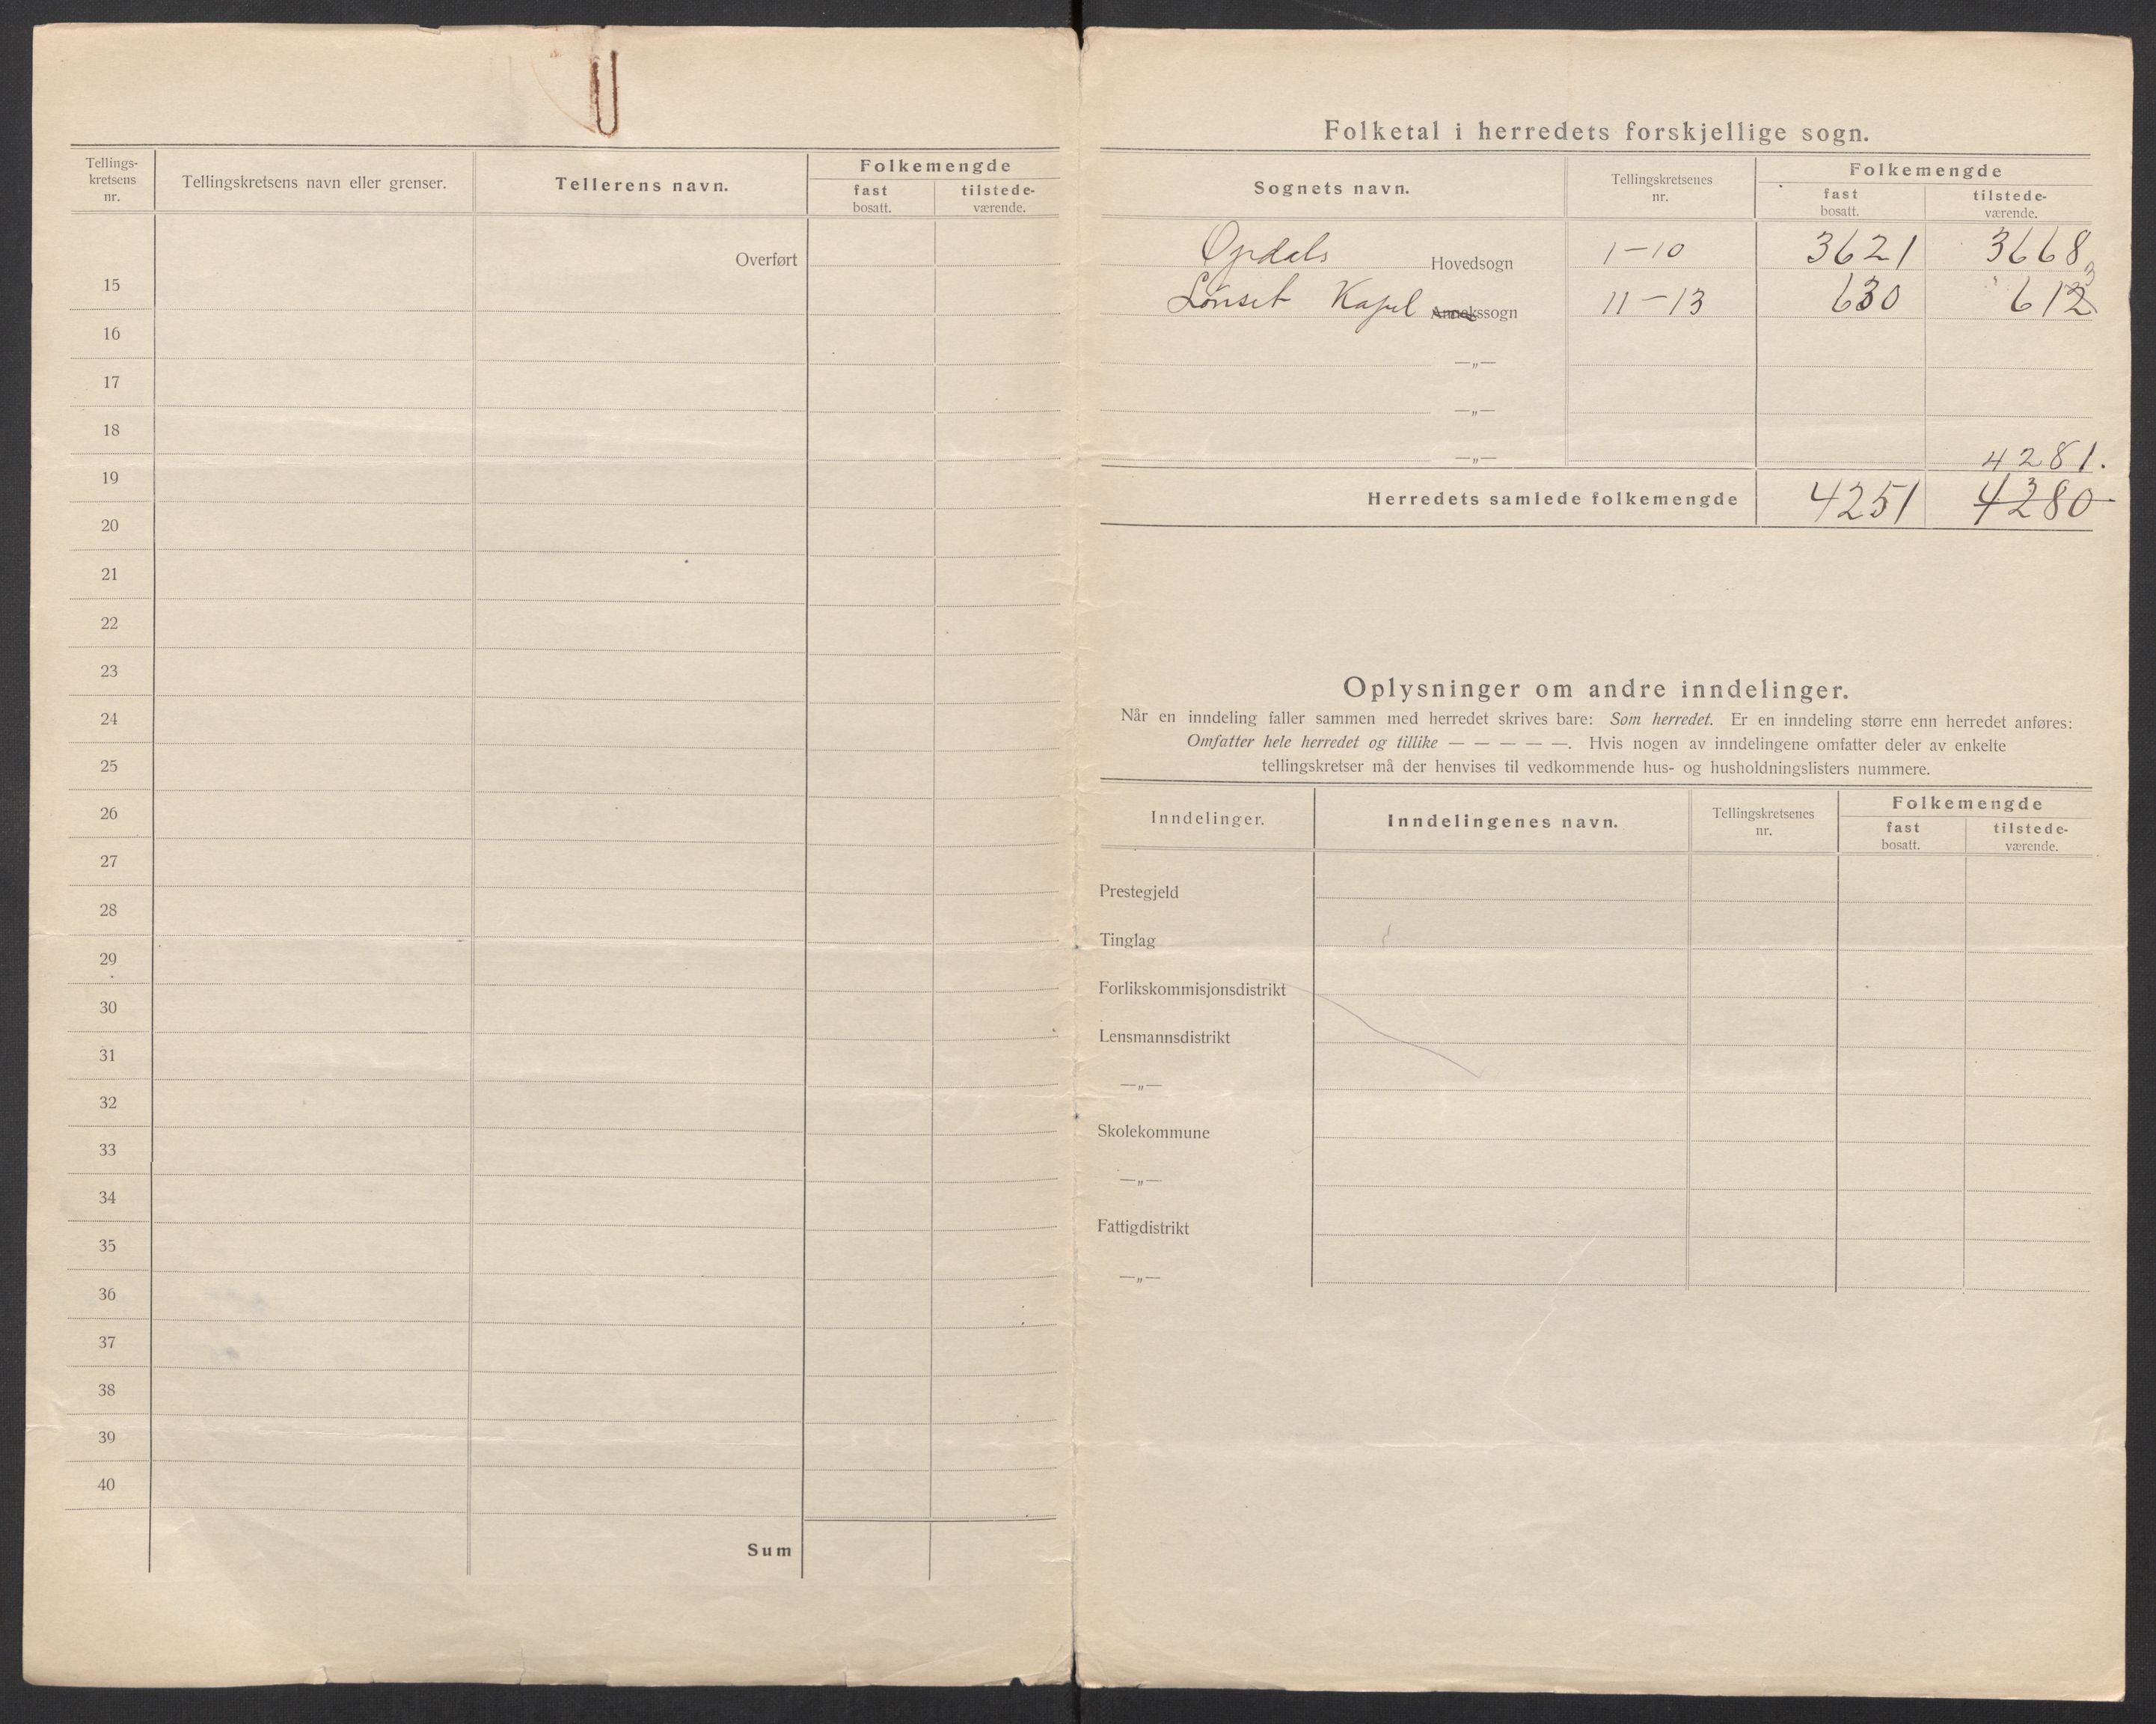 Tellings-
kretsens
nr.
Tellingskretsens navn eller grenser.
Tellerens navn.
Folkemengde
fast
bosatt.
tilstede-
værende.
Overført
15
16
17
18
19
20
21
22
23
24
25
26
27
28
29
30
31
32
33
34
35
36
37
38
39
40
Sum
Folketal i herredets forskjellige sogn.
Sognets navn.
Tellingskretsenes
nr.
Folkemengde
fast
bosatt.
tilstede-
værende.
Opdals Hovedsogn 1-10 3621 3668
3
Lønset Kapel Annekssogn 11-13 630 612
—„—
—„—
—„— 4281.
Herredets samlede folkemengde 4251 4280
Oplysninger om andre inndelinger.
Når en inndeling faller sammen med herredet skrives bare: Som herredet. Er en inndeling større enn herredet anføres:
Omfatter hele herredet og tillike — — — — —. Hvis nogen av inndelingene omfatter deler av enkelte
tellingskretser må der henvises til vedkommende hus- og husholdningslisters nummere.
Inndelinger.
Inndelingenes navn.
Tellingskretsenes
nr.
Folkemengde
fast
bosatt.
tilstede-
værende.
Prestegjeld
Tinglag
Forlikskommisjonsdistrikt
Lensmannsdistrikt
—„—
Skolekommune
—„—
Fattigdistrikt
—„—